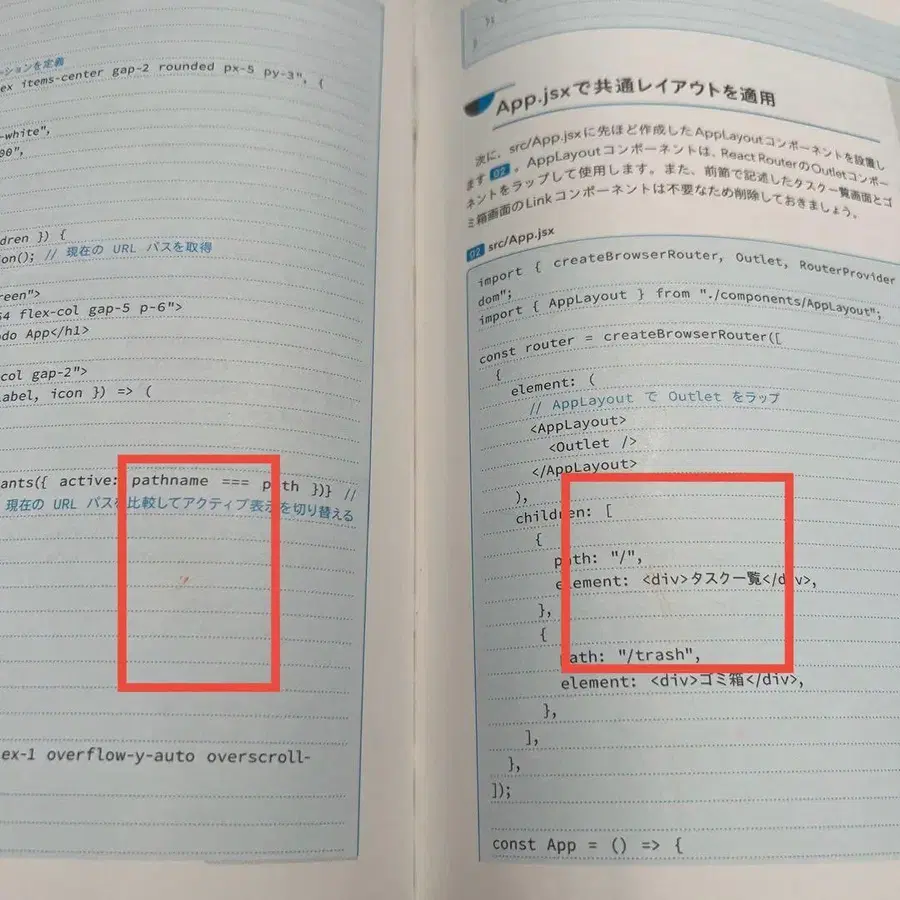 ーションを定義
ex items-center gap-2 rounded px-5 py-3", {
-white",
00",
dren }) {
on(); // 現在の URL パスを取得
reen">
64 flex-col gap-5 p-6">
odo App</h1>
col gap-2">
label, icon }) => (
ants({ active: pathname === path })} //
現在の URL パスを比較してアクティブ表示を切り替える
ex-1 overflow-y-auto overscroll-
}
App.jsxで共通レイアウトを適用
次に、src/App.jsxに先ほど作成したAppLayoutコンポーネントを設置し
ます 02 。AppLayoutコンポーネントは、React RouterのOutletコンポー
ネントをラップして使用します。また、前節で記述したタスク一覧画面とゴ
ミ箱画面のLinkコンポーネントは不要なため削除しておきましょう。
02 src/App.jsx
import { createBrowserRouter, Outlet, RouterProvider
dom";
import { AppLayout } from "./components/AppLayout";
const router = createBrowserRouter([
{
element: (
// AppLayout で Outlet をラップ
<AppLayout>
<Outlet />
</AppLayout>
),
children: [
{
path: "/",
element: <div>タスク一覧</div>,
},
{
path: "/trash",
element: <div>ゴミ箱</div>,
},
],
},
]);
const App = () => {